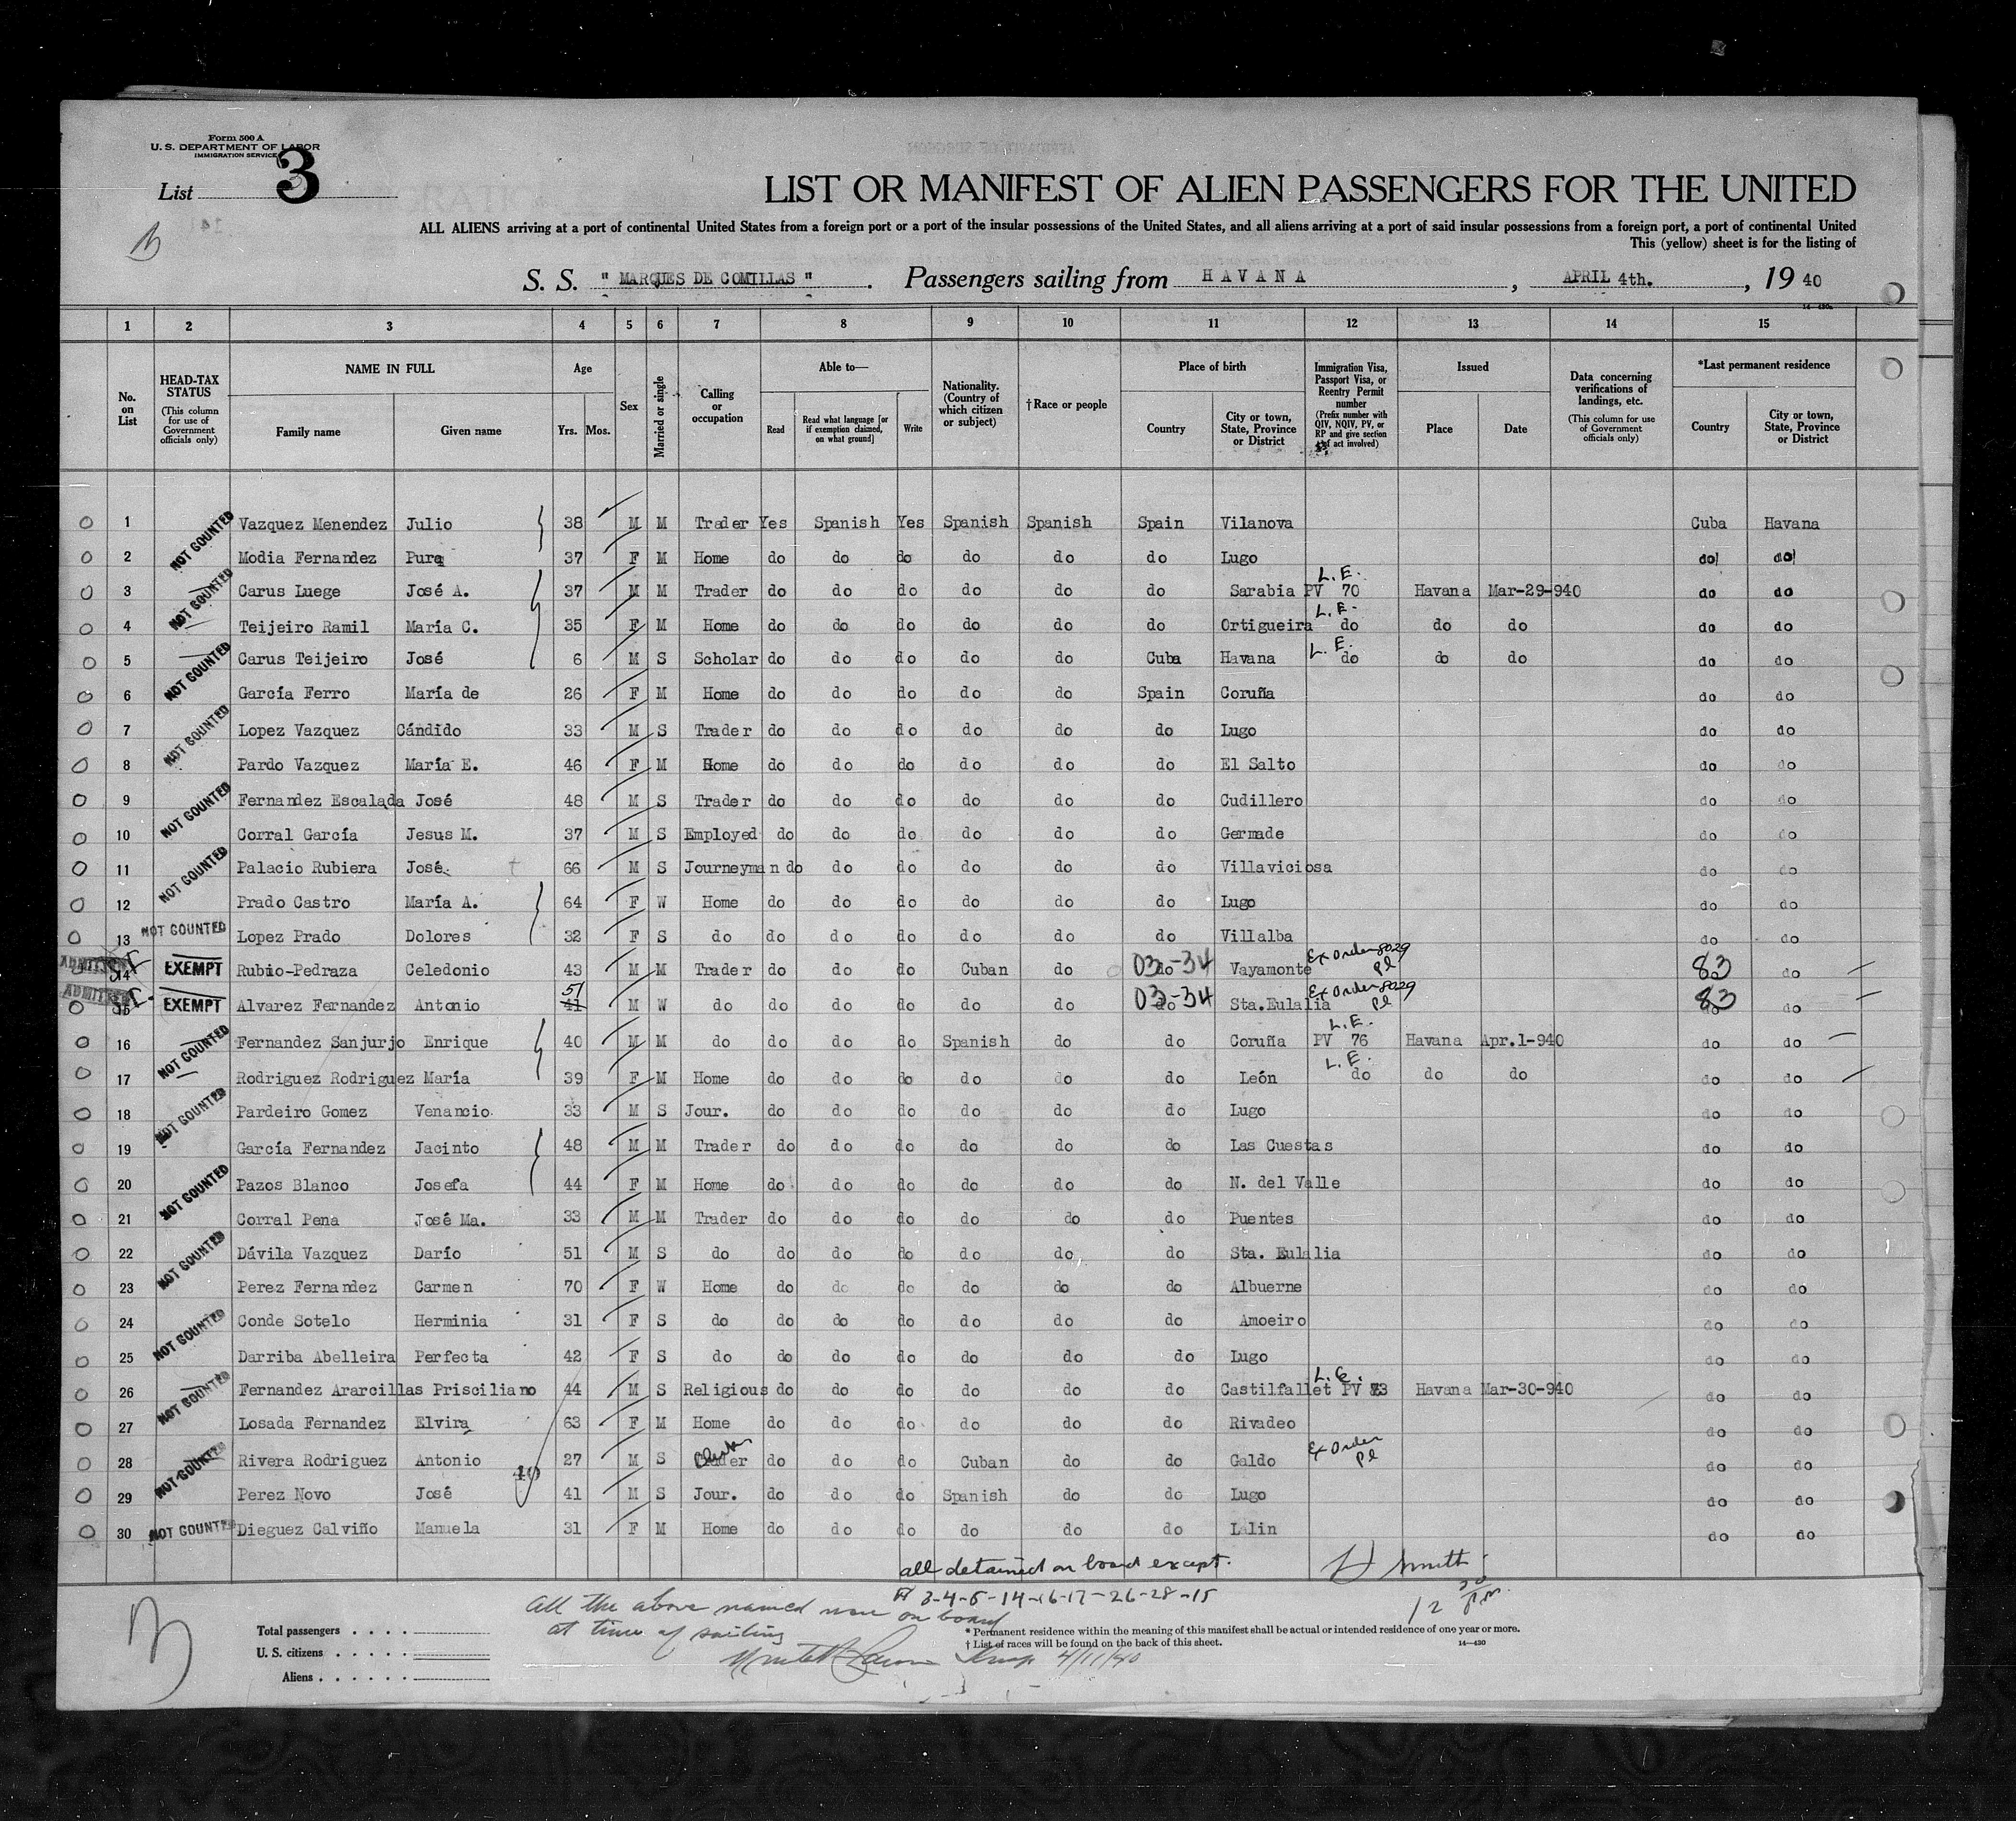 Form 500 A
U. S. DEPARTMENT OF LABOR
IMMIGRATION SERVICE
List 3
LIST OR MANIFEST OF ALIEN PASSENGERS FOR THE UNITED
ALL ALIENS arriving at a port of continental United States from a foreign port or a port of the insular possessions of the United States, and all aliens arriving at a port of said insular possessions from a foreign port, a port of continental United
This (yellow) sheet is for the listing of
S. S. "MARQUES DE COMILLAS". Passengers sailing from HAVANA, APRIL 4th., 19 40
14-430a
1 2 3 4 5 6 7 8 9 10 11 12 13 14 15
No. on List
HEAD-TAX STATUS (This column for use of Government officials only)
NAME IN FULL
Family name Given name
Age
Yrs. Mos.
Sex
Married or single
Calling or occupation
Able to—
Read
Read what language [or if exemption claimed, on what ground]
Write
Nationality. (Country of which citizen or subject)
†Race or people
Place of birth
Country
City or town, State, Province or District
Immigration Visa, Passport Visa, or Reentry Permit number (Prefix number with QIV, NQIV, PV, or RP and give section of act involved)
Issued
Place Date
Data concerning verifications of landings, etc. (This column for use of Government officials only)
*Last permanent residence
Country
City or town, State, Province or District
1 NOT COUNTED Vazquez Menendez Julio 38 M M Trader Yes Spanish Yes Spanish Spanish Spain Vilanova Cuba Havana
2 Modia Fernandez Pura 37 F M Home do do do do do do Lugo do do
3 NOT COUNTED Carus Luege José A. 37 M M Trader do do do do do do Sarabia L.E. PV 70 Havana Mar-29-940 do do
4 Teijeiro Ramil María C. 35 F M Home do do do do do do Ortigueira L.E. do do do do do
5 NOT COUNTED Carus Teijeiro José 6 M S Scholar do do do do do Cuba Havana L.E. do do do do do
6 García Ferro María de 26 F M Home do do do do do Spain Coruña do do
7 NOT COUNTED Lopez Vazquez Cándido 33 M S Trader do do do do do do Lugo do do
8 Pardo Vazquez María E. 46 F M Home do do do do do do El Salto do do
9 NOT COUNTED Fernandez Escalada José 48 M S Trader do do do do do do Cudillero do do
10 Corral García Jesus M. 37 M S Employed do do do do do do Germade do do
11 NOT COUNTED Palacio Rubiera José 66 M S Journeyman do do do do do do Villaviciosa do do
12 Prado Castro María A. 64 F W Home do do do do do do Lugo do do
13 NOT COUNTED Lopez Prado Dolores 32 F S do do do do do do do Villalba do do
ADMITTED 14 EXEMPT Rubio-Pedraza Celedonio 43 M M Trader do do do Cuban do do 03-34 Vayamonte Ex Order 8029 pl 83 do do
ADMITTED 15 EXEMPT Alvarez Fernandez Antonio 41 51 M W do do do do do do do 03-34 Sta.Eulalia Ex Order 8029 pl 83 do do
16 NOT COUNTED Fernandez Sanjurjo Enrique 40 M M do do do do Spanish do do Coruña L.E. PV 76 Havana Apr.1-940 do do
17 Rodriguez Rodriguez María 39 F M Home do do do do do do León L.E. do do do do do
18 NOT COUNTED Pardeiro Gomez Venancio 33 M S Jour. do do do do do do Lugo do do
19 García Fernandez Jacinto 48 M M Trader do do do do do do Las Cuestas do do
20 NOT COUNTED Pazos Blanco Josefa 44 F M Home do do do do do do N. del Valle do do
21 Corral Pena José Ma. 33 M M Trader do do do do do do Puentes do do
22 NOT COUNTED Dávila Vazquez Darío 51 M S do do do do do do do Sta. Eulalia do do
23 Perez Fernandez Carmen 70 F W Home do do do do do do Albuerne do do
24 NOT COUNTED Conde Sotelo Herminia 31 F S do do do do do do do Amoeiro do do
25 Darriba Abelleira Perfecta 42 F S do do do do do do do Lugo do do
26 NOT COUNTED Fernandez Ararcillas Prisciliano 44 M S Religious do do do do do do Castilfallet PV 73 Havana Mar-30-940 do do
27 Losada Fernandez Elvira 63 F M Home do do do do do do Rivadeo do do
28 NOT COUNTED Rivera Rodriguez Antonio 27 M S do do do Cuban do do Galdo Ex Order pl do do
29 Perez Novo José 41 M S Jour. do do do Spanish do do Lugo do do
30 NOT COUNTED Dieguez Calviño Manuela 31 F M Home do do do do do do Lalin do do
all detained on board except
# 3-4-5-14-16-17-26-28-15
All the above named were on board
at time of sailing
4/11/40
Total passengers
U. S. citizens
Aliens
* Permanent residence within the meaning of this manifest shall be actual or intended residence of one year or more.
† List of races will be found on the back of this sheet.
14-430